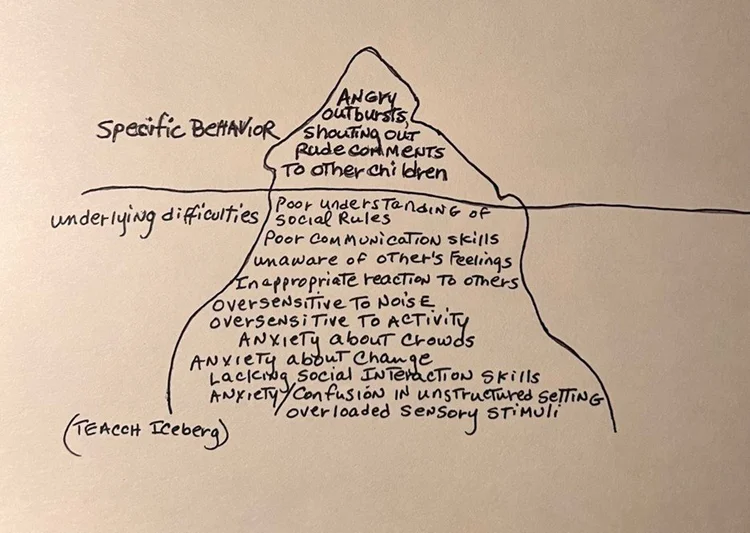 ANGRY
outbursts,
shouting out
Rude comments
To other children
Specific BEHAVIOR
underlying difficulties
Poor understanding of
Social Rules
Poor communication skills
unaware of other's Feelings
Inappropriate reaction to others
oversensitive to Noise
oversensitive to Activity
Anxiety about crowds
Anxiety about Change
Lacking Social Interaction Skills
Anxiety/Confusion in unstructured setting
overloaded sensory stimuli
(TEACCH Iceberg)